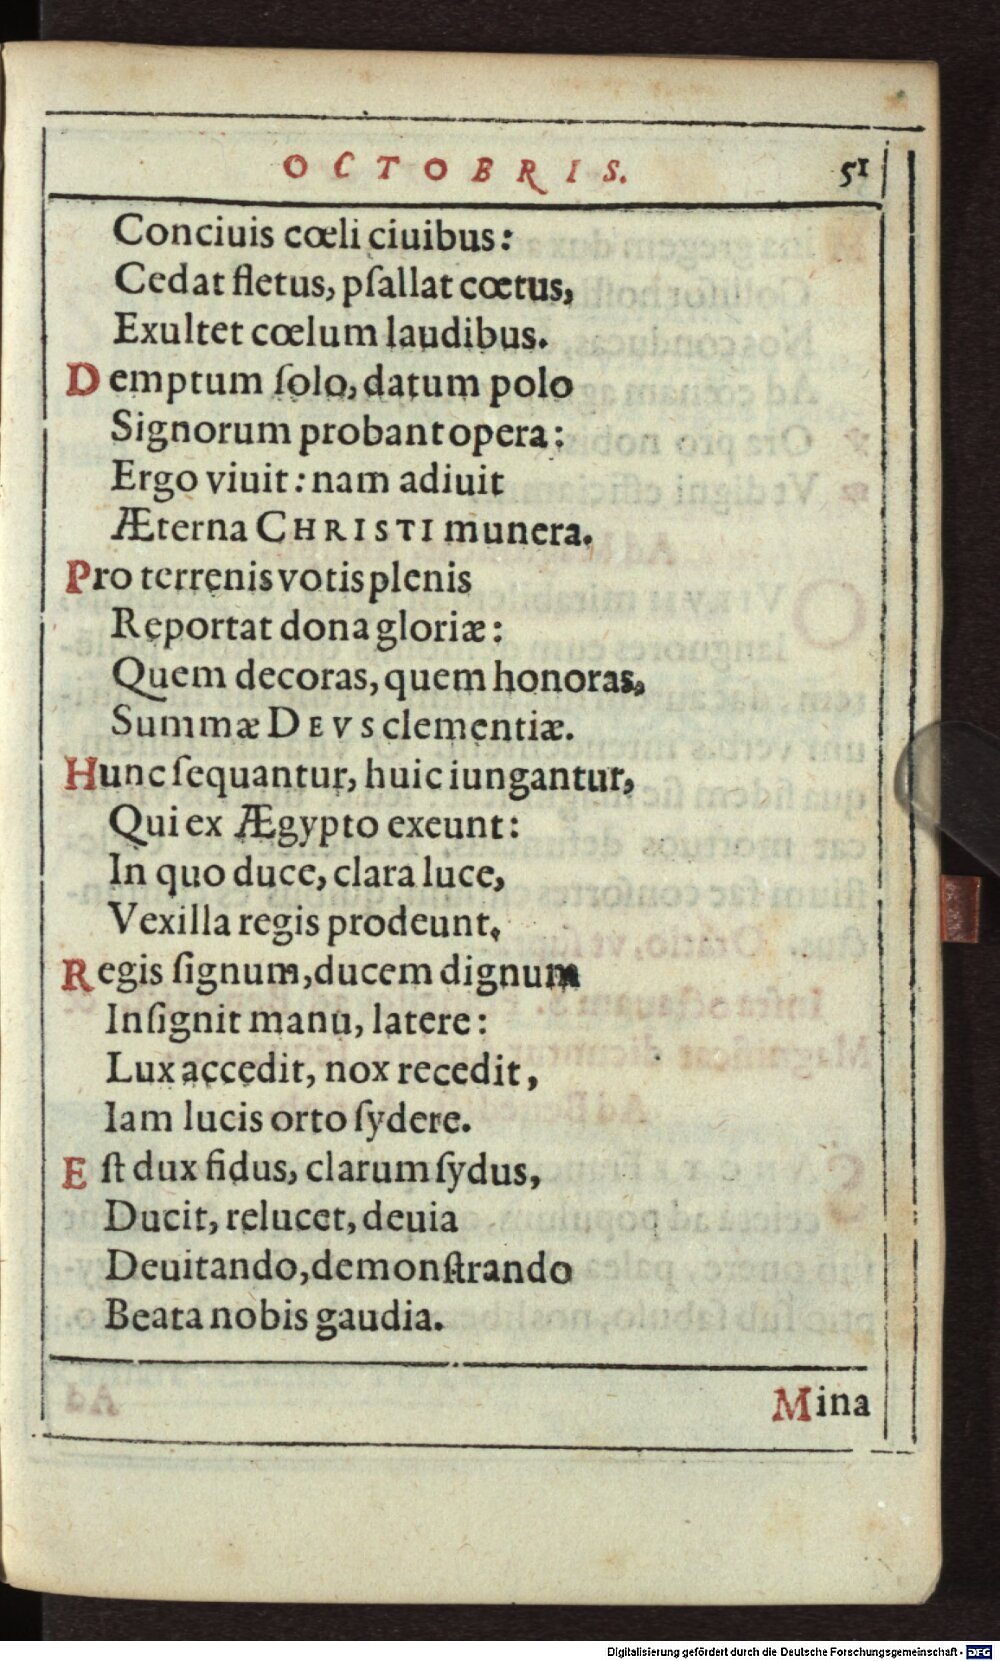 OCTOBRIS. 51
Conciuis cœli ciuibus:
Cedat fletus, pſallat cœtus,
Exultet cœlum laudibus.
Demptum ſolo, datum polo
Signorum probant opera:
Ergo viuit: nam adiuit
Æterna CHRISTI munera.
Pro terrenis votis plenis
Reportat dona gloriæ:
Quem decoras, quem honoras,
Summæ DEVS clementiæ.
Hunc ſequantur, huic iungantur,
Qui ex Ægypto exeunt:
In quo duce, clara luce,
Vexilla regis prodeunt.
Regis ſignum, ducem dignum
Inſignit manu, latere:
Lux accedit, nox recedit,
Iam lucis orto ſydere.
Eſt dux fidus, clarum ſydus,
Ducit, relucet, deuia
Deuitando, demonſtrando
Beata nobis gaudia.
Mina
Digitalisierung gefördert durch die Deutsche Forschungsgemeinschaft - DFG